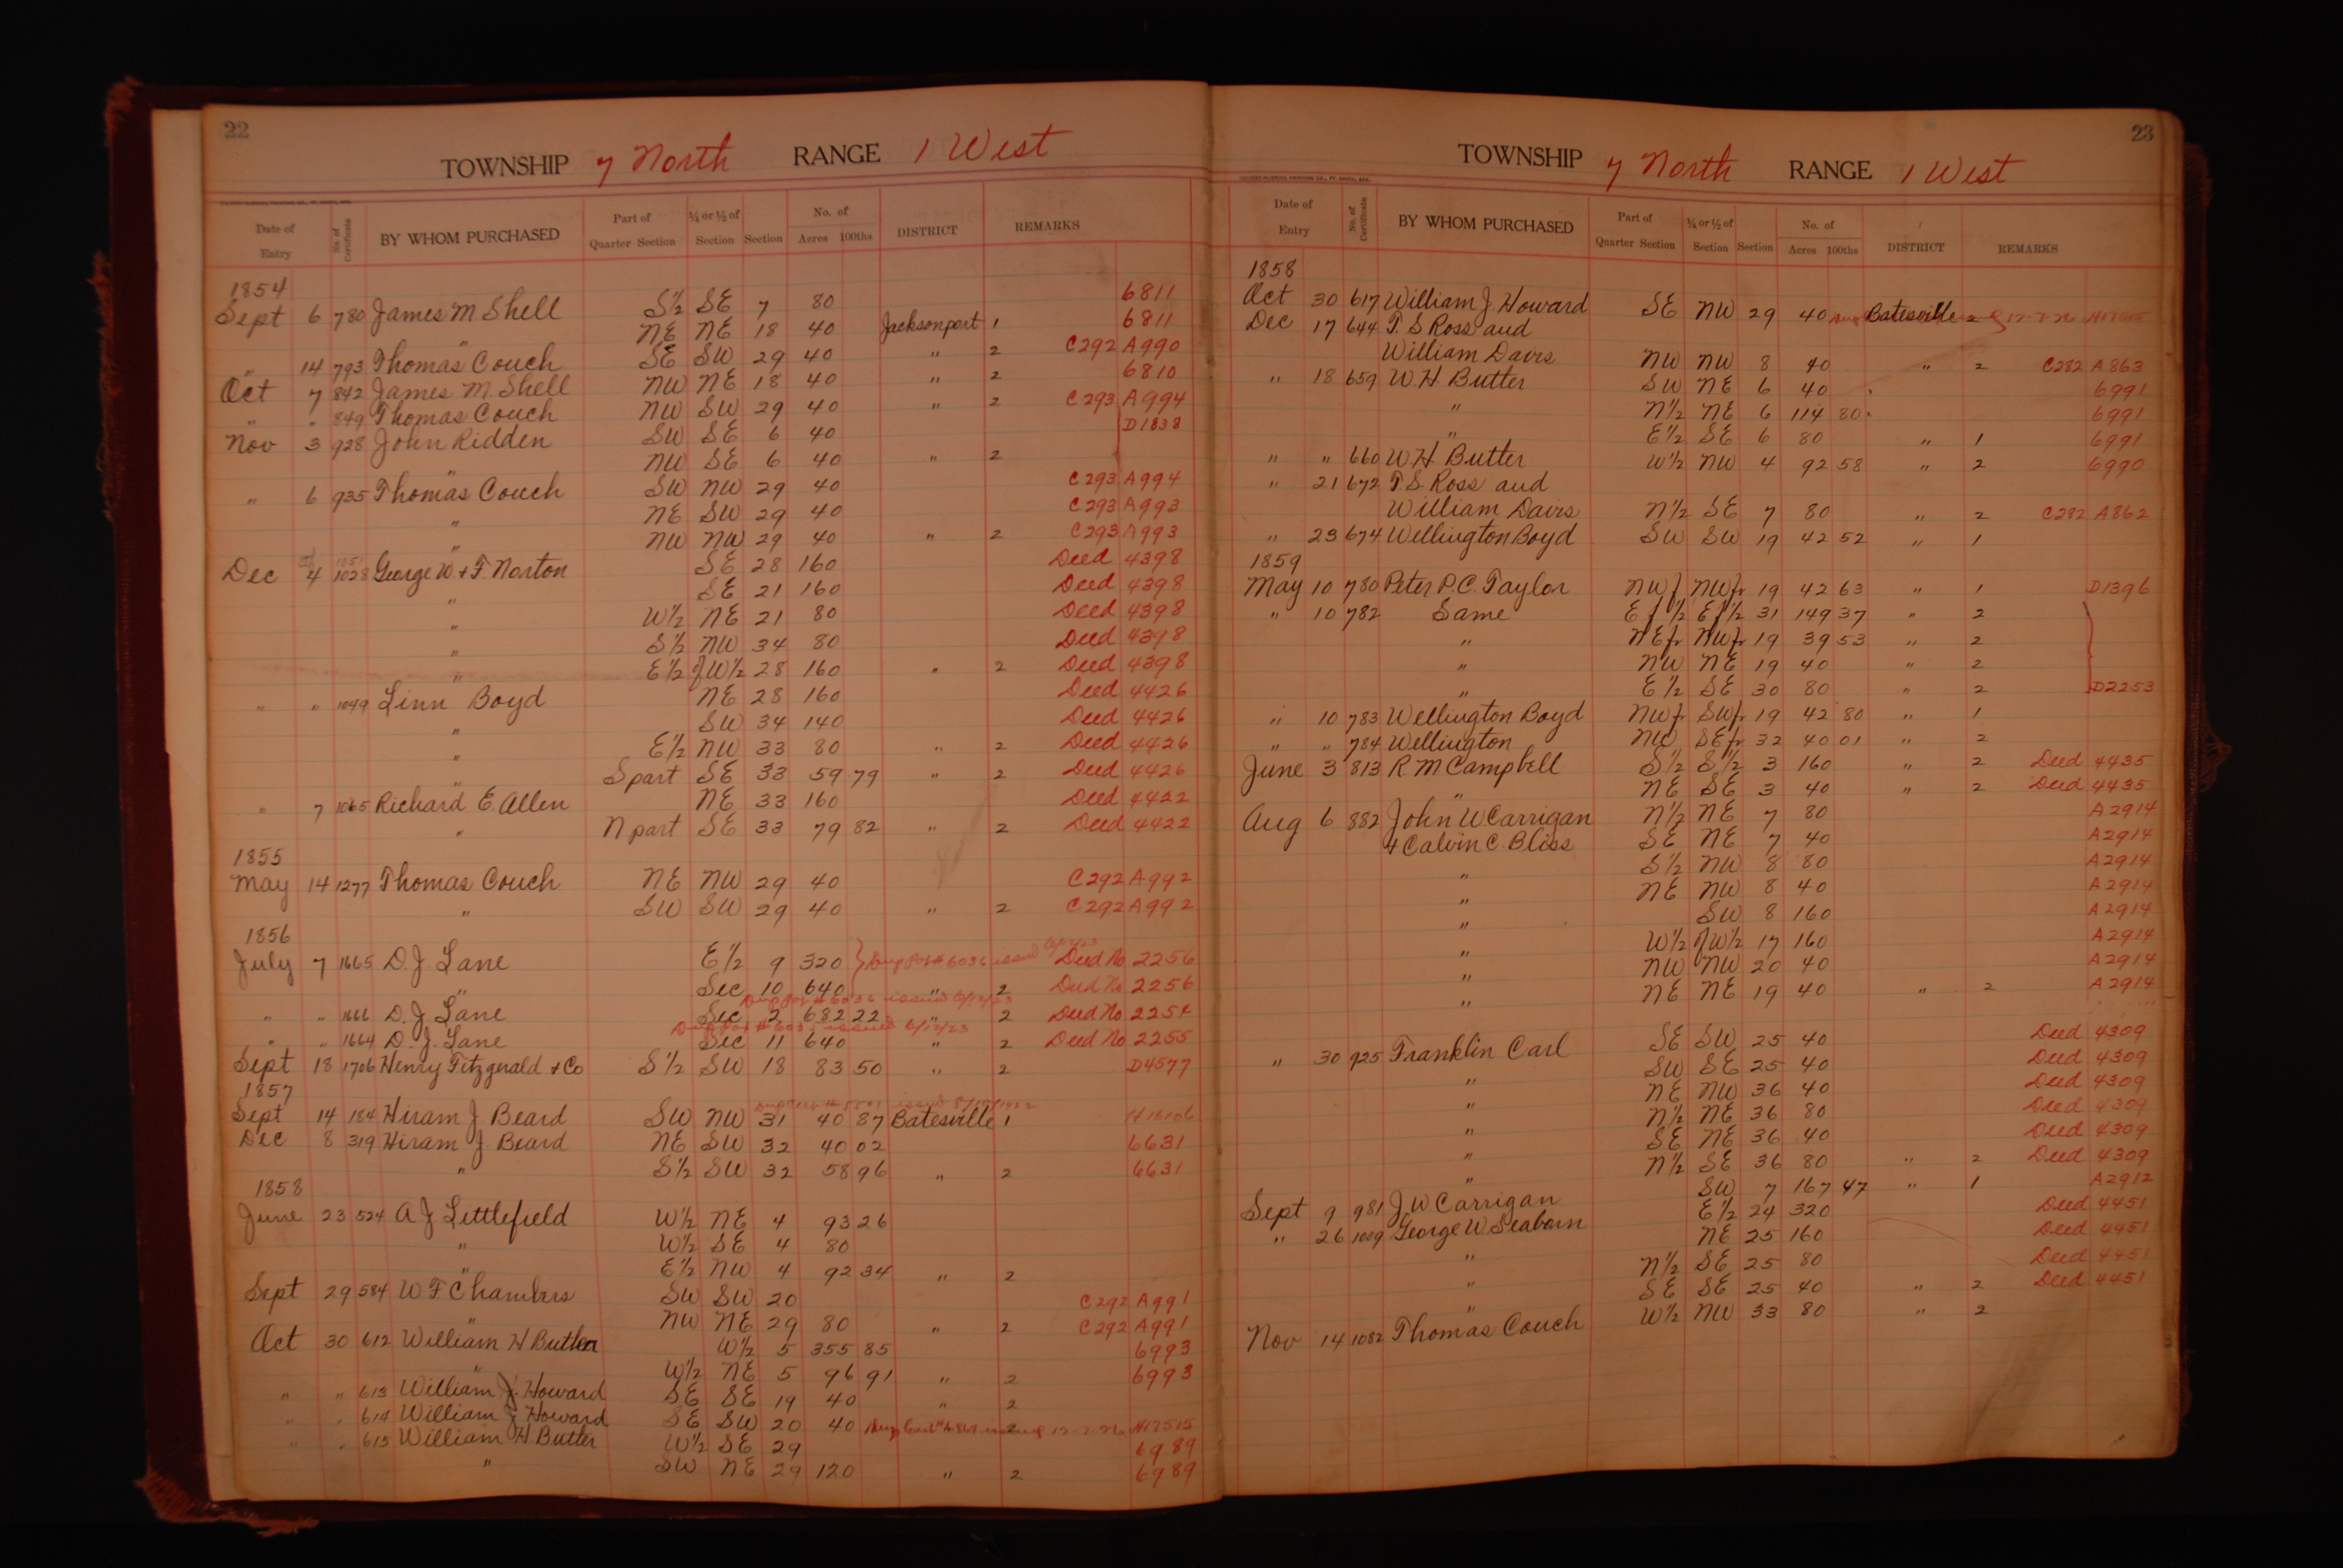 22
TOWNSHIP 7 North RANGE 1 West
Date of Entry No. of Certificate BY WHOM PURCHASED Part of Quarter Section ¼ or ½ of Section Section No. of Acres 100ths DISTRICT REMARKS
1854
Sept 6 780 James M Shell S½ SE 7 80 6811
" NE NE 18 40 Jacksonport 1 6811
" 14 793 Thomas Couch SE SW 29 40 " 2 C292 A990
Oct 7 842 James M. Shell NW NE 18 40 " 2 6810
" " 849 Thomas Couch NW SW 29 40 " 2 C293 A994
Nov 3 928 John Ridden SW SE 6 40 D1838
NW SE 6 40 " 2
" 6 935 Thomas Couch SW NW 29 40 C293 A994
" NE SW 29 40 C293 A993
" NW NW 29 40 " 2 C293 A993
Dec 4 1028 George W. + F. Norton SE 28 160 Deed 4398
" SE 21 160 Deed 4398
" W½ NE 21 80 Deed 4398
" S½ NW 34 80 Deed 4398
" E½ of W½ 28 160 " 2 Deed 4398
" " 1049 Linn Boyd NE 28 160 Deed 4426
" SW 34 140 Deed 4426
" E½ NW 33 80 " 2 Deed 4426
" S part SE 33 59 79 " 2 Deed 4426
" 7 1065 Richard E. Allen NE 33 160 Deed 4422
" N part SE 33 79 82 " 2 Deed 4422
1855
May 14 1277 Thomas Couch NE NW 29 40 C292 A992
" SW SW 29 40 " 2 C292 A992
1856
July 7 1665 D. J. Lane E½ 9 320 Deed No 2256
" Sec 10 640 " 2 Deed No 2256
" " 1666 D. J. Lane Sec 2 682 22 " 2 Deed No 2254
" " 1664 D. J. Lane Sec 11 640 " 2 Deed No 2255
Sept 18 1706 Henry Fitzgerald + Co S½ SW 18 83 50 " 2 D4577
1857
Sept 14 184 Hiram J Beard SW NW 31 40 87 Batesville 1 H16106
Dec 8 319 Hiram J Beard NE SW 32 40 02 6631
" S½ SW 32 58 96 " 2 6631
1858
June 23 524 A J Littlefield W½ NE 4 93 26
" W½ SE 4 80
" E½ NW 4 92 34 " 2
Sept 29 584 W F Chambers SW SW 20 C292 A991
" NW NE 29 80 " 2 C292 A991
Oct 30 612 William H Butler W½ 5 355 85 6993
" W½ NE 5 96 91 " 2 6993
" " 613 William J. Howard SE SE 19 40 " 2
" " 614 William J Howard SE SW 20 40 2 H17515
" " 615 William H Butler W½ SE 29 6989
" SW NE 29 120 " 2 6989
23
TOWNSHIP 7 North RANGE 1 West
Date of Entry No. of Certificate BY WHOM PURCHASED Part of Quarter Section ¼ or ½ of Section Section No. of Acres 100ths DISTRICT REMARKS
1858
Oct 30 617 William J Howard SE NW 29 40 Batesville 2
Dec 17 644 T. S Ross and
William Davis NW NW 8 40 " 2 C282 A863
" 18 659 W. H. Butter SW NE 6 40 6991
" N½ NE 6 114 80 6991
" E½ SE 6 80 " 1 6991
" " 660 W H Butter W½ NW 4 92 58 " 2 6990
" 21 672 T. S. Ross and
William Davis N½ SE 7 80 " 2 C282 A862
" 23 674 Wellington Boyd SW SW 19 42 52 " 1
1859
May 10 780 Peter P. C. Taylor NWf NWfr 19 42 63 " 1 D1396
" 10 782 Same E f ½ E f ½ 31 149 37 " 2
" NEfr NWfr 19 39 53 " 2
" NW NE 19 40 " 2
" E½ SE 30 80 " 2 D2253
" 10 783 Wellington Boyd NWfr SWfr 19 42 80 " 1
" " 784 Wellington NW SEfr 32 40 01 " 2
June 3 813 R M Campbell S½ S½ 3 160 " 2 Deed 4435
" NE SE 3 40 " 2 Deed 4435
Aug 6 882 John W Carrigan N½ NE 7 80 A2914
+ Calvin C. Bliss SE NE 7 40 A2914
" S½ NW 8 80 A2914
" NE NW 8 40 A2914
" SW 8 160 A2914
" W½ of W½ 17 160 A2914
" NW NW 20 40 A2914
" NE NE 19 40 " 2 A2914
" 30 925 Franklin Carl SE SW 25 40 Deed 4309
" SW SE 25 40 Deed 4309
" NE NW 36 40 Deed 4309
" N½ NE 36 80 Deed 4309
" SE NE 36 40 Deed 4309
" N½ SE 36 80 " 2 Deed 4309
Sept 9 981 J. W. Carrigan SW 7 167 47 " 1 A2912
" 26 1009 George W. Seaborn E½ 24 320 Deed 4451
" NE 25 160 Deed 4451
" N½ SE 25 80 Deed 4451
" SE SE 25 40 " 2 Deed 4451
Nov 14 1082 Thomas Couch W½ NW 33 80 " 2